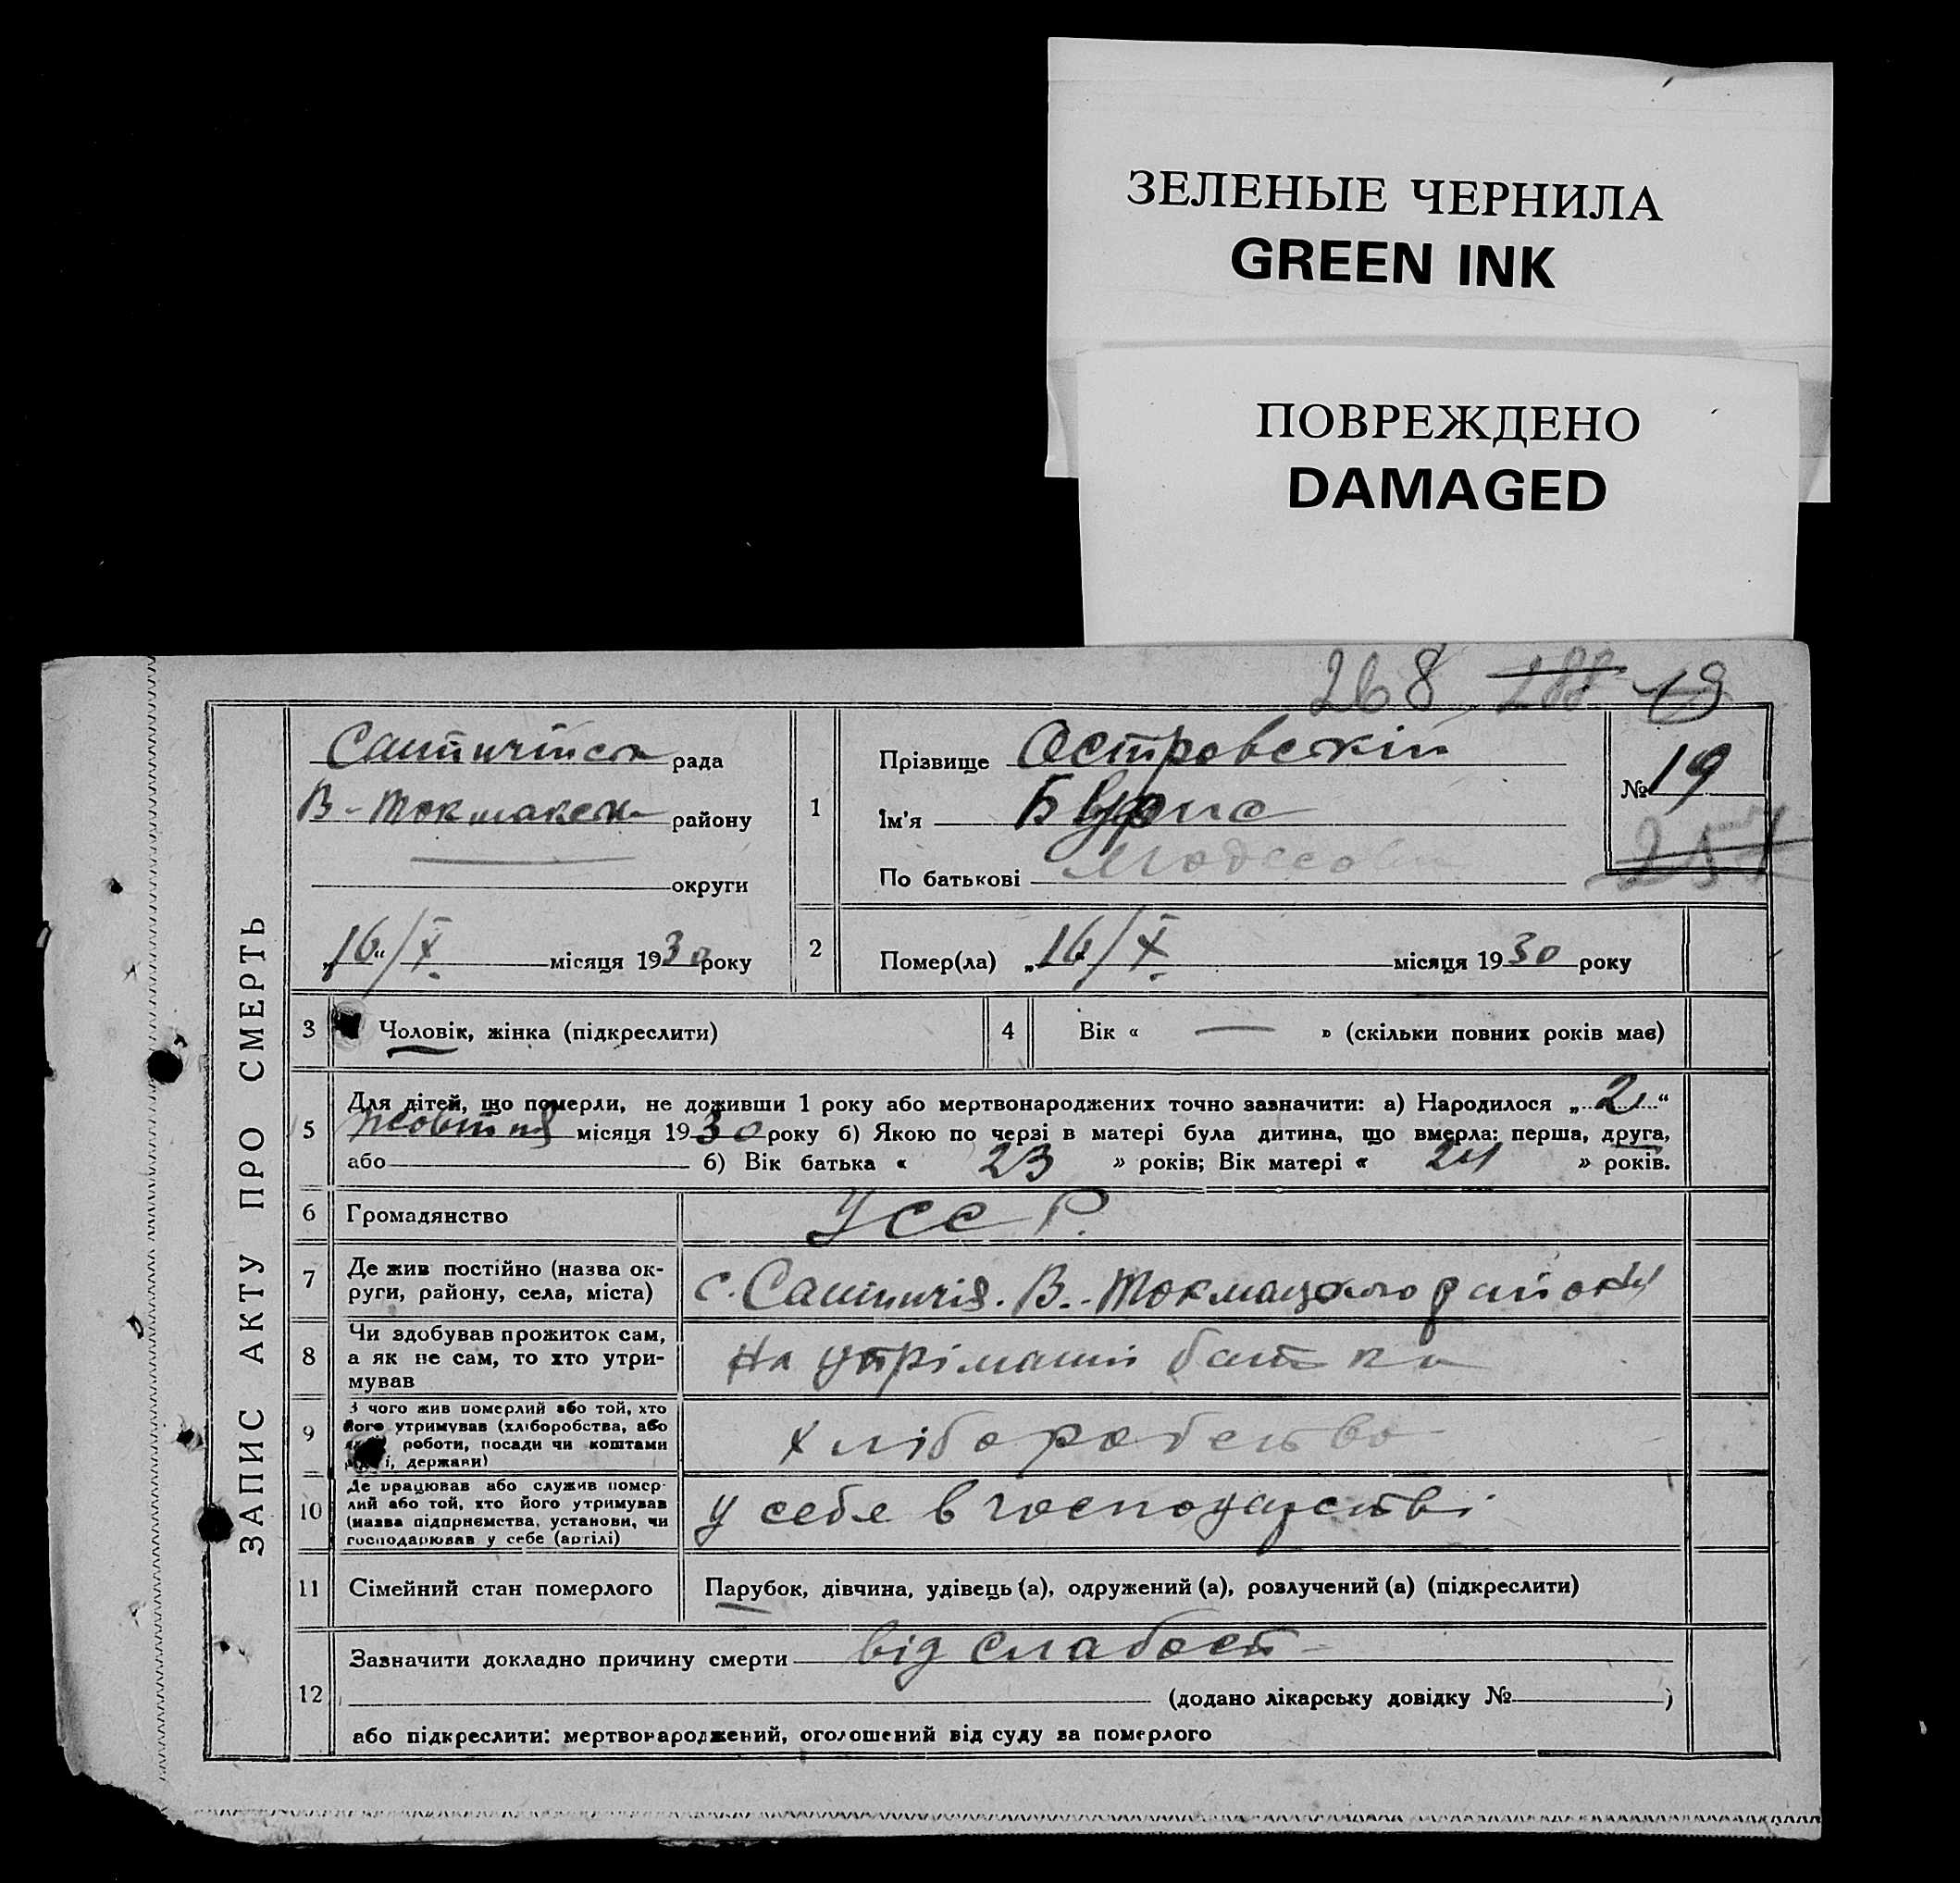 ЗЕЛЕНЫЕ ЧЕРНИЛА
GREEN INK
ПОВРЕЖДЕНО
DAMAGED
268 19
ЗАПИС АКТУ ПРО СМЕРТЬ
рада
В-Токмакськ району
округи
„16“/X місяця 1930 року
1
Прізвище Островскій
Ім'я Бориса
По батькові
№ 19
257
2
Помер(ла) „16/X місяця 1930 року
3 Чоловік, жінка (підкреслити)
4 Вік « — » (скільки повних років має)
5 Для дітей, що померли, не доживши 1 року або мертвонароджених точно зазначити: а) Народилося „2“
жовтня місяця 1930 року б) Якою по черзі в матері була дитина, що вмерла: перша, друга,
або б) Вік батька « 23 » років; Вік матері « 21 » років.
6 Громадянство УССР.
7 Де жив постійно (назва ок-
руги, району, села, міста)
с. В.-Токмацкого району
8 Чи здобував прожиток сам,
а як не сам, то хто утри-
мував
На утріманні батька
9 З чого жив померлий або той, хто
його утримував (хліборобства, або
роботи, посади чи коштами
і, держави)
хліборобство
10 Де працював або служив помер-
лий або той, хто його утримував
(назва підприємства, установи, чи
господарював у себе (артілі)
у себе в господарстві
11 Сімейний стан померлого Парубок, дівчина, удівець (а), одружений (а), розлучений (а) (підкреслити)
12 Зазначити докладно причину смерти від слабост
(додано лікарську довідку № )
або підкреслити: мертвонароджений, оголошений від суду за померлого